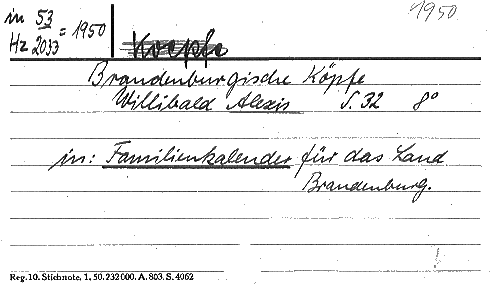 in 53/Hz 2033 = 1950
1950
Koepfe
Brandenburgische Köpfe
Willibald Alexis S. 32 8°
in: Familienkalender für das Land
Brandenburg.
Reg. 10. Stichnote, 1, 50. 232000. A. 803. S. 4062